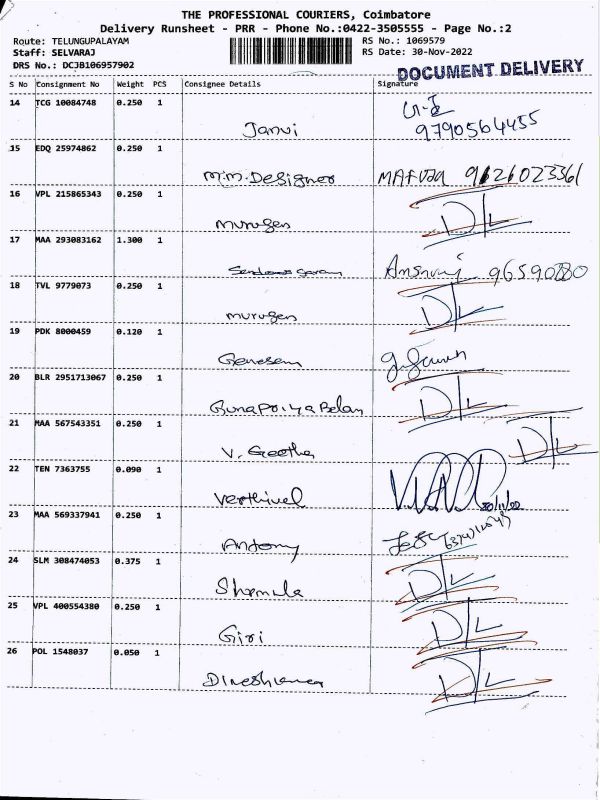 THE PROFESSIONAL COURIERS, Coimbatore
Delivery Runsheet - PRR - Phone No.:0422-3505555 - Page No.:2
Route: TELUNGUPALAYAM RS No.: 1069579
Staff: SELVARAJ RS Date: 30-Nov-2022
DRS No.: DCJB106957902 DOCUMENT DELIVERY
S No Consignment No Weight PCS Consignee Details Signature
14 TCG 10084748 0.250 1
Janvi 9790564455
15 EDQ 25974862 0.250 1
M.M. Designer 9626023361
16 VPL 215865343 0.250 1
murugen D/L
17 MAA 293083162 1.300 1
96590280
18 TVL 9779073 0.250 1
murugen D/L
19 PDK 8000459 0.120 1
Genesen
20 BLR 2951713067 0.250 1
Gunapriya Belan D/L
21 MAA 567543351 0.250 1
V. Geetha D/L
22 TEN 7363755 0.090 1
Verthivel 30/11/22
23 MAA 569337941 0.250 1
Antony
24 SLM 308474053 0.375 1
Shamila D/L
25 VPL 400554380 0.250 1
Giri D/L
26 POL 1548037 0.050 1
D/L